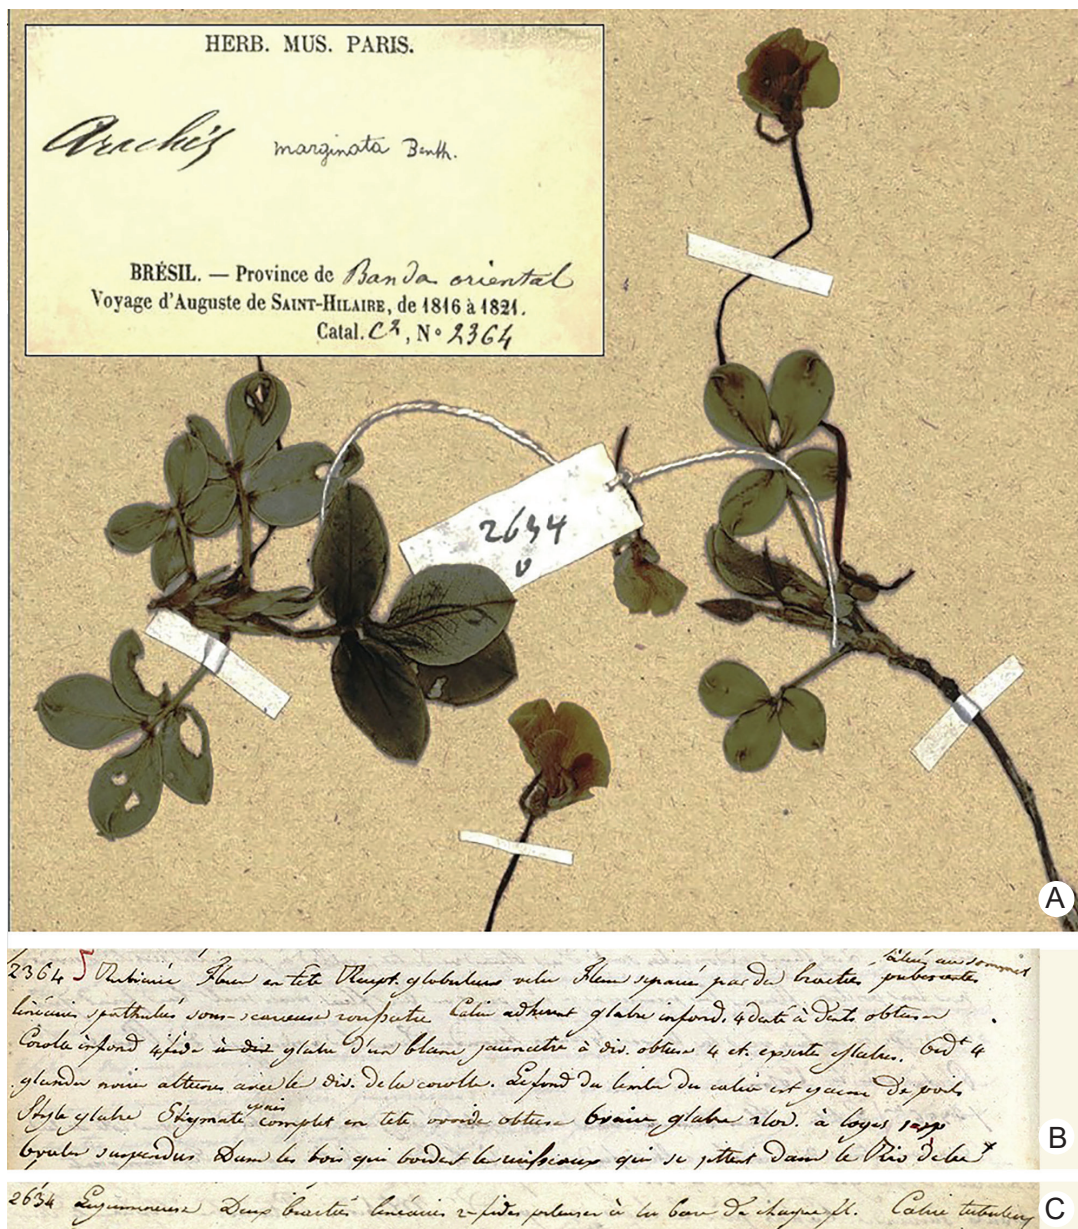 HERB. MUS. PARIS.
Arachis marginata Benth.
BRÉSIL. — Province de Banda oriental
Voyage d'Auguste de SAINT-HILAIRE, de 1816 à 1821.
Catal. C2, N° 2364
2634
A
2364 Rubiacée Fleur en tete Recept. globuleux velu Fleurs separées par des bractées pubescentes
au sommet
linéaires spathulées sous-scarieuses roussatre Calice adherent glabre infond. 4 denté à dents obtuses
Corolle infond 4 fide glabre d'un blanc jaunatre à div. obtuses 4 et.
glandes noires alternes avec le div. de la corolle. Le fond du limbe du calice est garni de poils
Style glabre Stigmate épais complet en tete ovoide obtuse Ovaire glabre 2 loc. à loges
ovules suspendus Dans les bois qui bordent les ruisseaux qui se jettent dans le Rio de la
B
2634 Legumineuse Deux bractées linéaires 2-fides à la base de chaque fl. Calice tubuleux
C